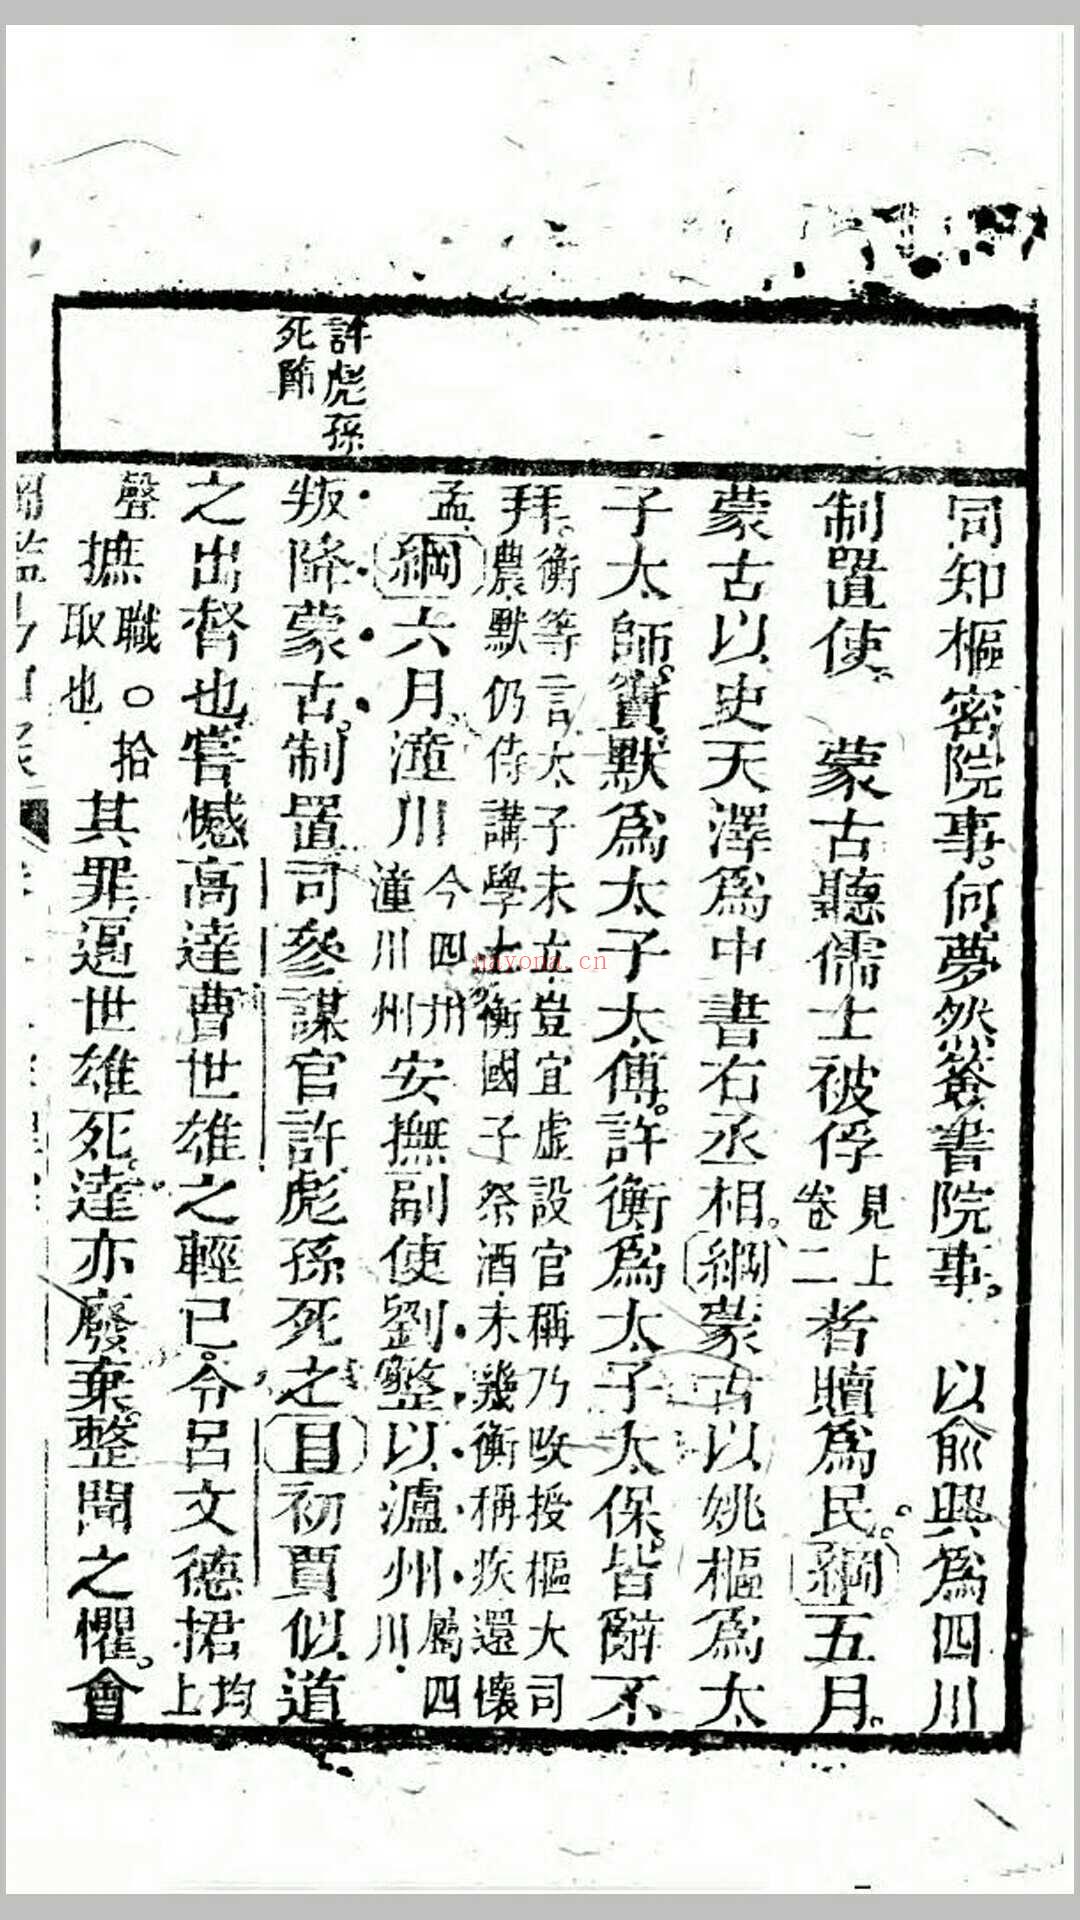 許彪孫
死節
同知樞密院事。何夢然簽書院事。　以俞興爲四川
制置使。　蒙古聽儒士被俘見上卷二者贖爲民。綱五月。
蒙古以史天澤爲中書右丞相。綱蒙古以姚樞爲太
子太師。竇默爲太子太傅。許衡爲太子太保。皆辭不
拜。衡等言太子未立豈宜虛設官稱乃改授樞大司
農默仍侍講學士衡國子祭酒未幾衡稱疾還懷
孟。綱六月。潼川今四川潼川州安撫副使劉整以瀘州屬四川
叛降蒙古。制置司參謀官許彪孫死之目初賈似道
之出督也嘗憾高達曹世雄之輕已。令呂文德捃均上
聲摭職○拾取也其罪逼世雄死。達亦廢棄。整聞之懼。會
nayona.cn